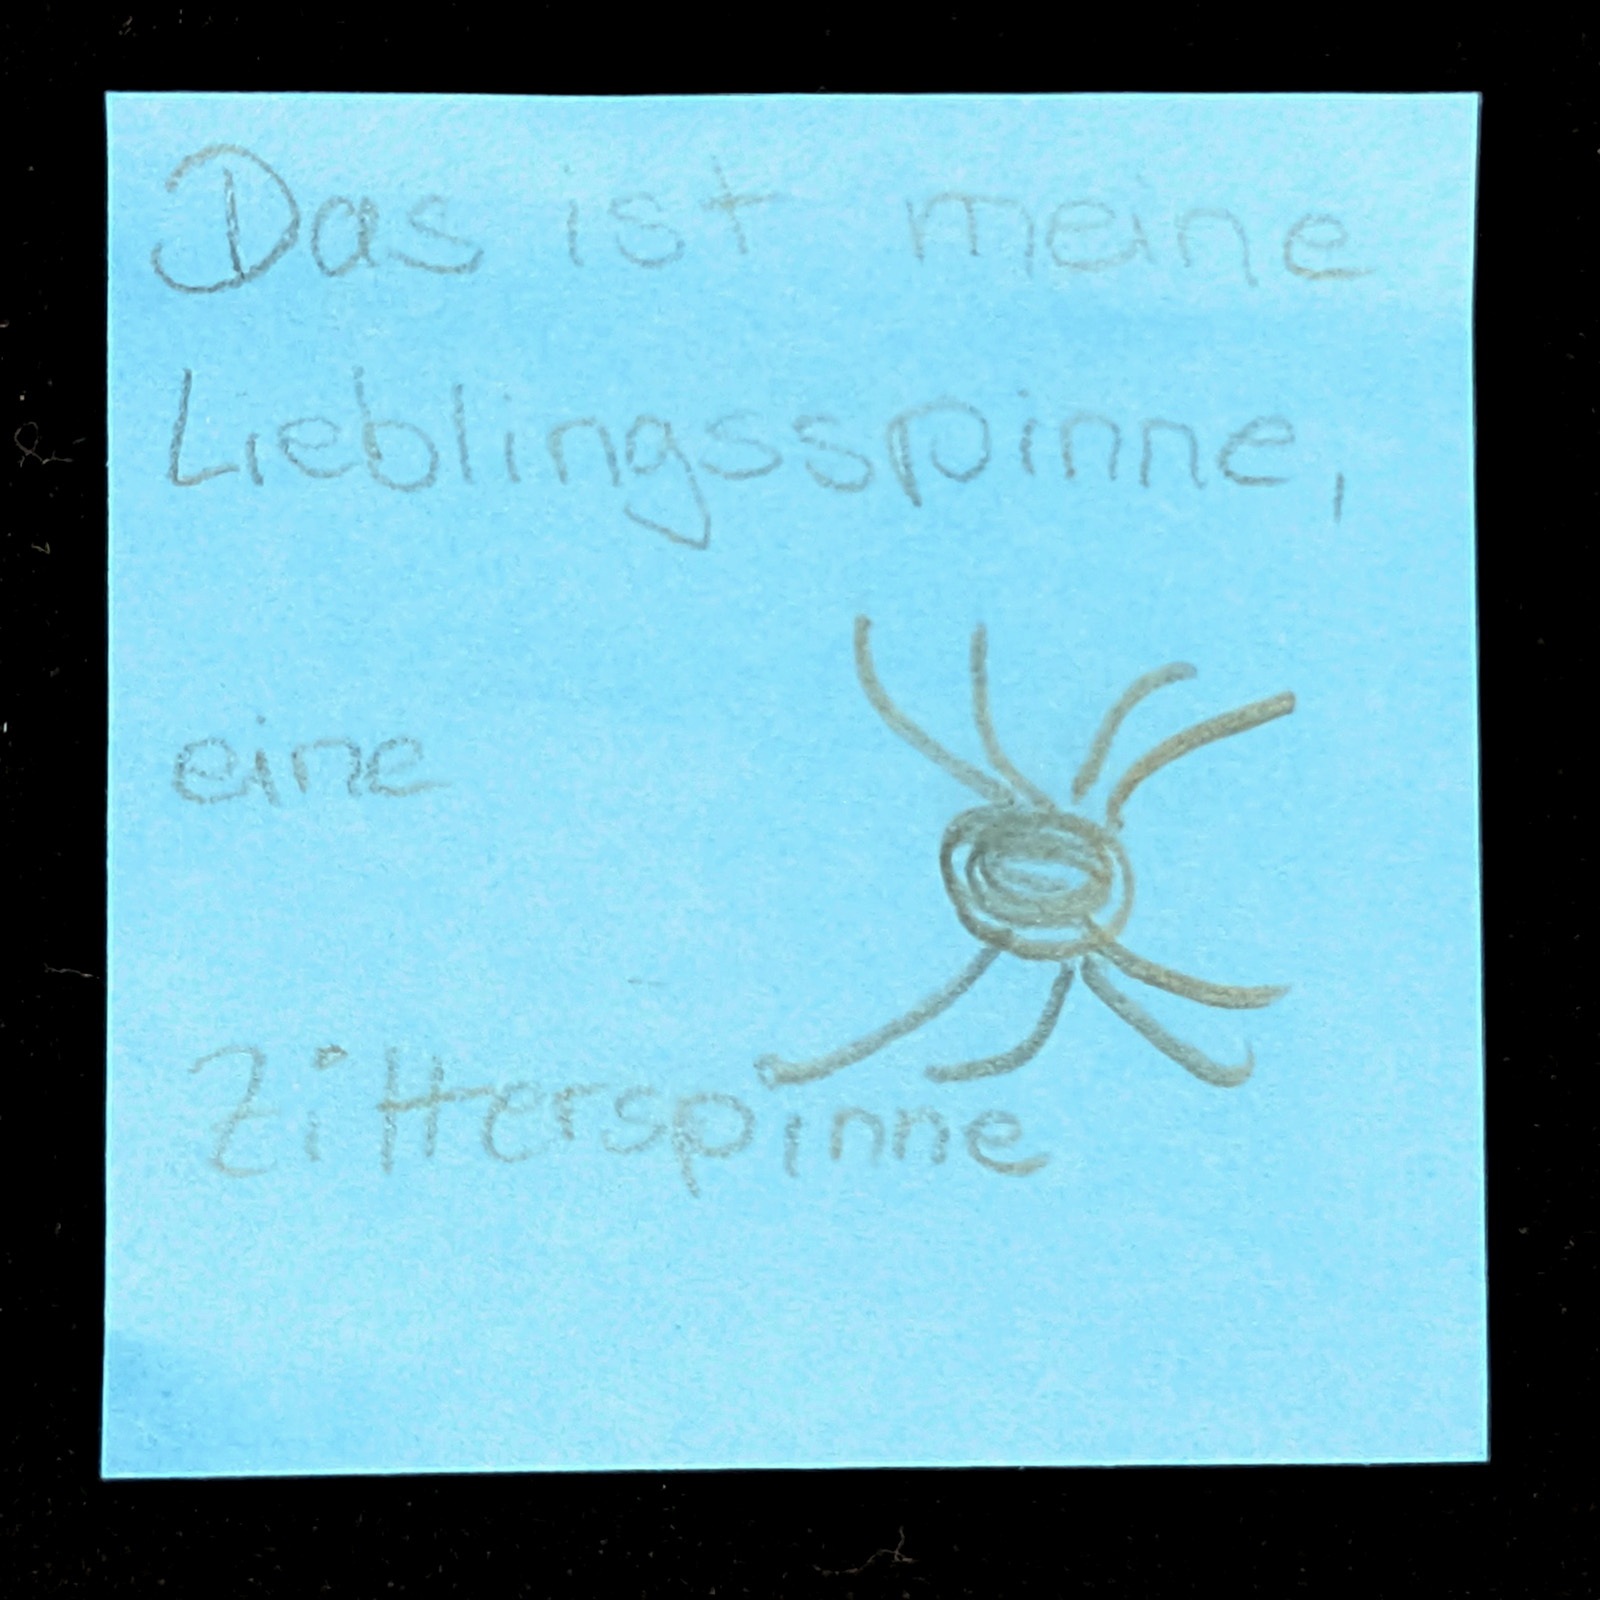 Das ist meine
Lieblingsspinne,
eine
Zitterspinne